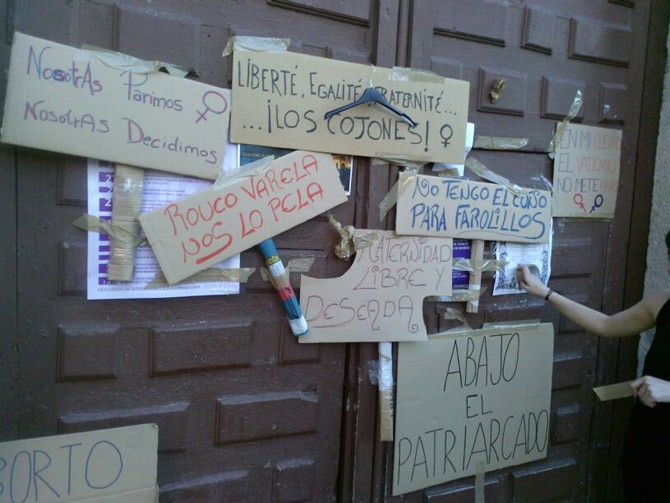 NosotrAs Parimos
NosotrAs Decidimos
LIBERTÉ, EGALITÉ, FRATERNITÉ...
...¡LOS COJONES!
EN MI CUERPO
EL VATICANO
NO METE
ROUCO VARELA
NOS LO PELA
NO TENGO EL COÑO
PARA FAROLILLOS
MATERNIDAD
LIBRE Y
DESEADA
ABAJO
EL
PATRIARCADO
BORTO